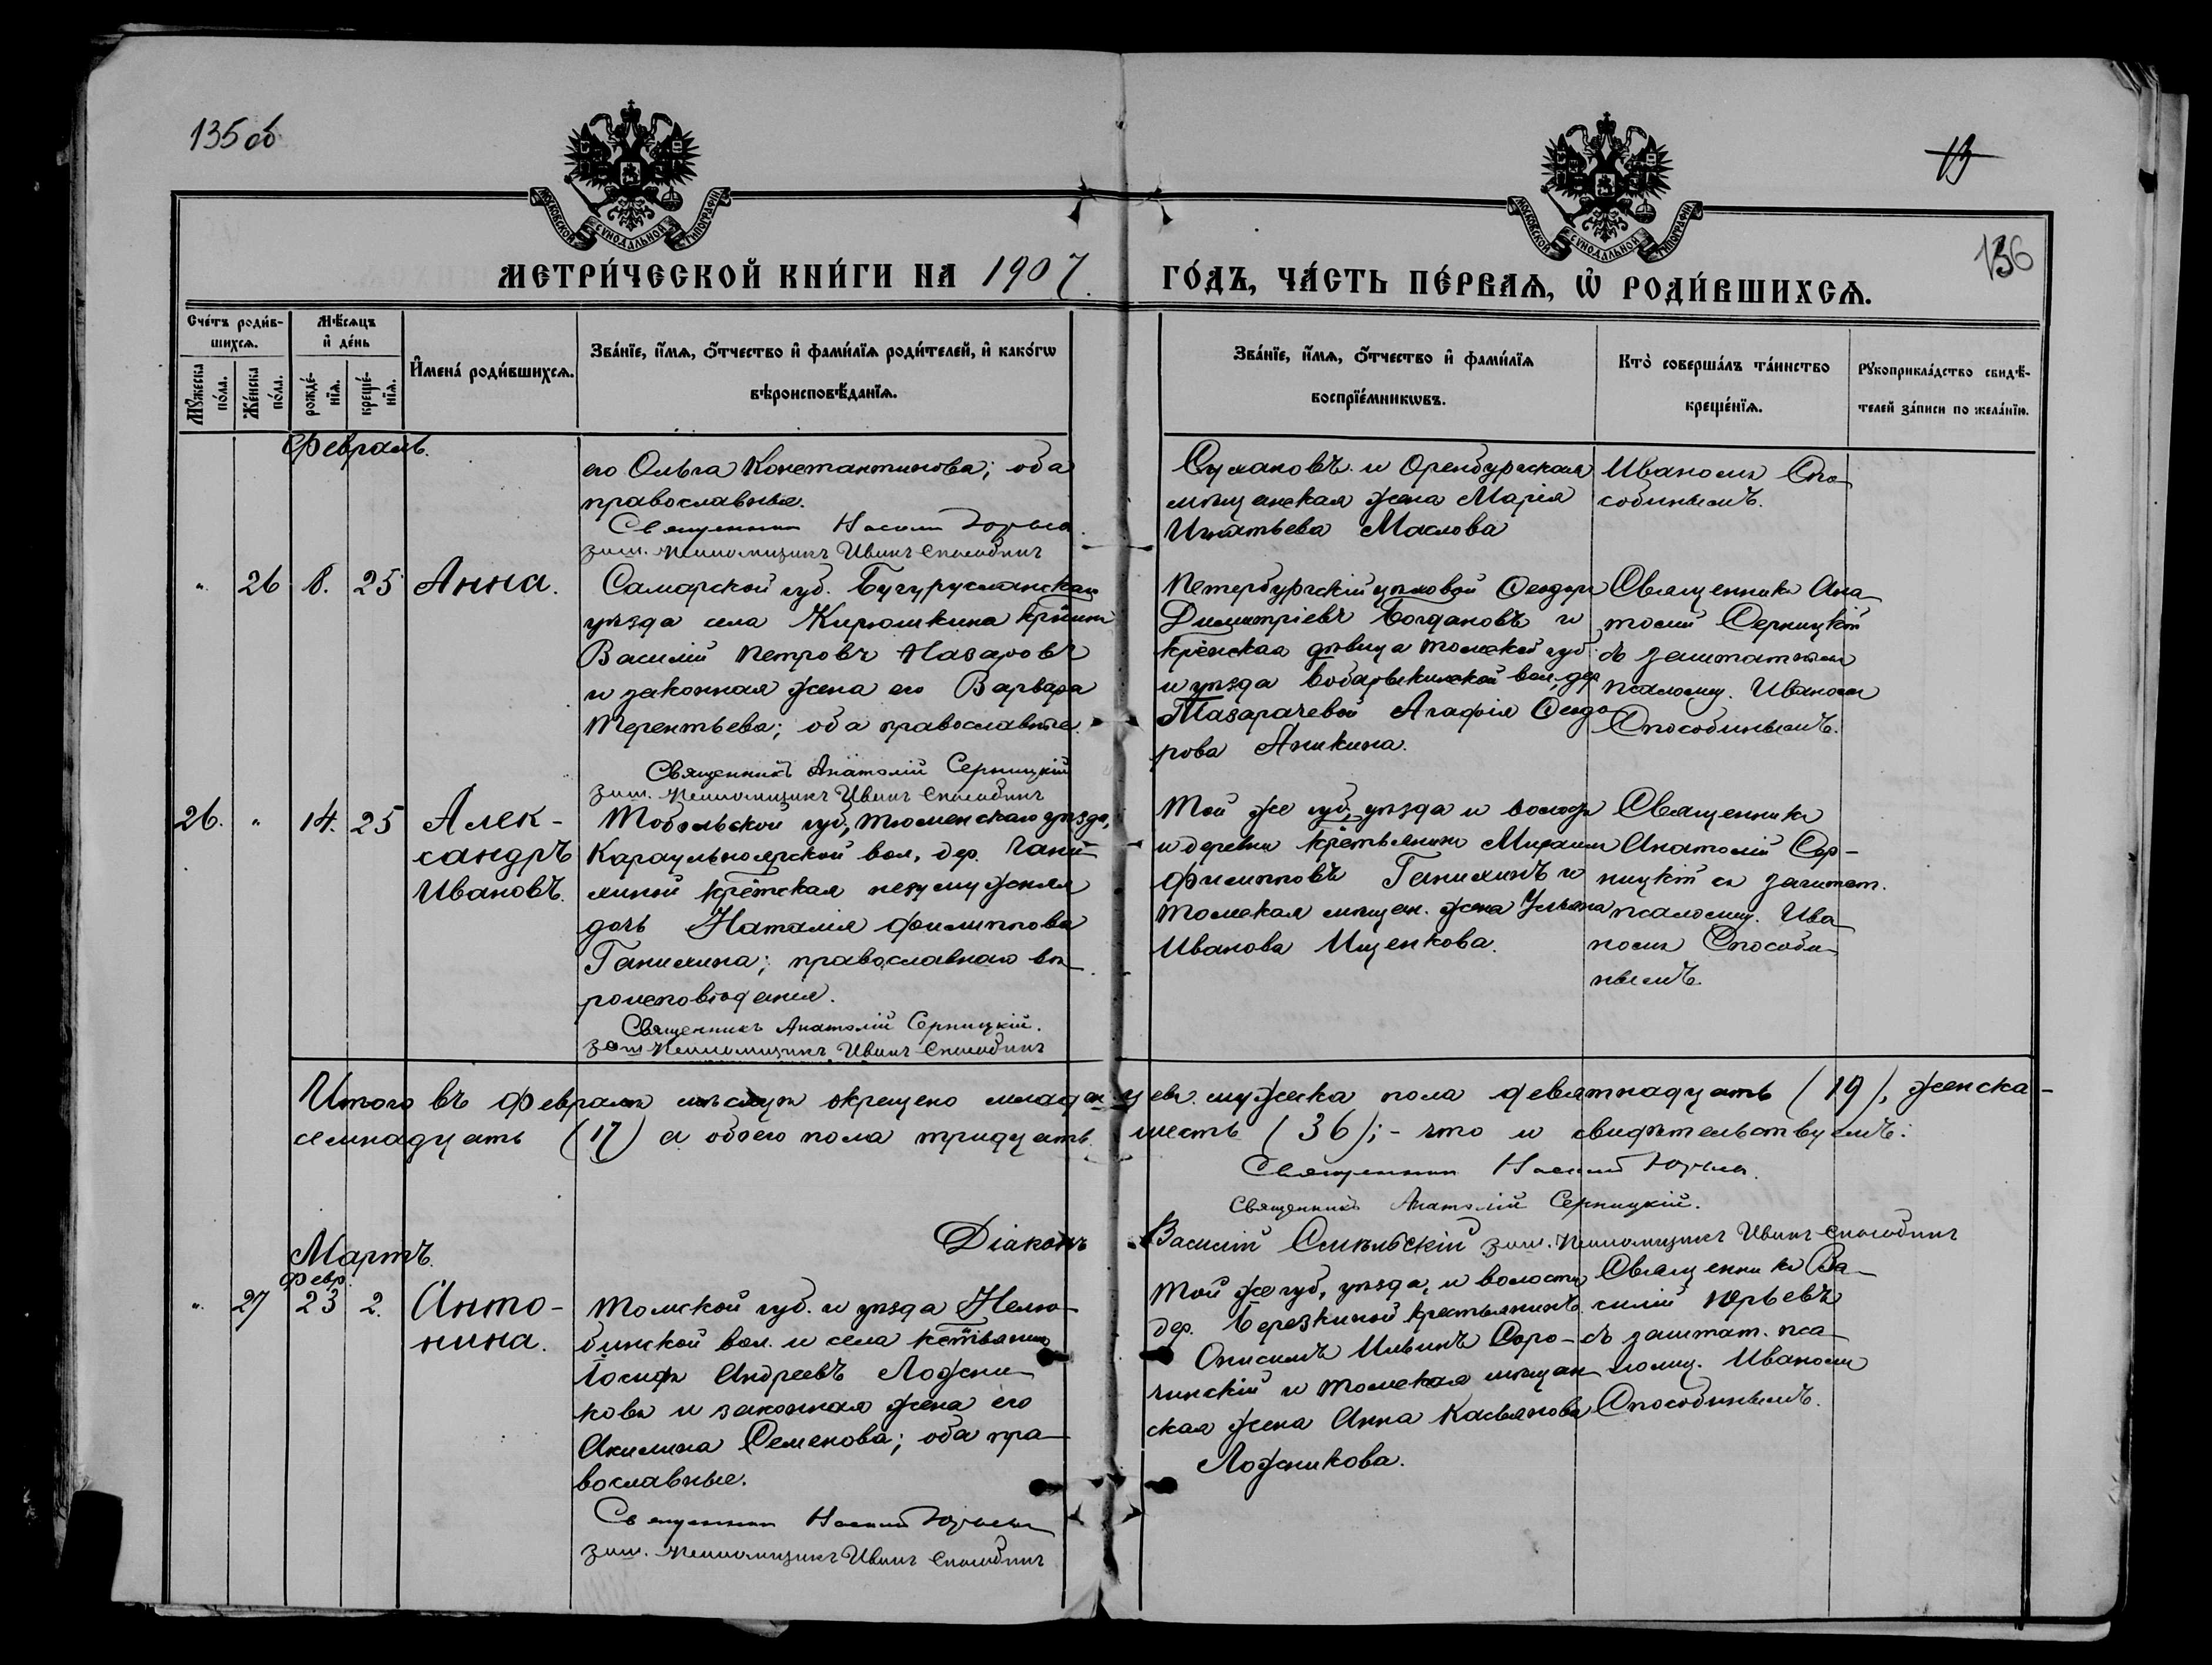 135 об
13
136
МОСКОВСКОЙ СУНОДАЛЬНОЙ ТИПОГРАФІИ
МОСКОВСКОЙ СУНОДАЛЬНОЙ ТИПОГРАФІИ
МЕТРИ́ЧЕСКОЙ КНИ́ГИ НА 1907 ГО́ДЪ, ЧА́СТЬ ПЕ́РВАЯ, Ѡ РОДИ́ВШИХСЯ.
Сче́тъ роди́в-
шихся.
Му́жеска по́ла.
Же́нска по́ла.
Мѣ́сяцъ и де́нь
рожде́-
нїя.
креще́-
нїя.
Имена́ роди́вшихся.
Зва́нїе, и́мя, о́тчество и фами́лїя роди́телей, и како́гѡ
вѣроисповѣ́данїя.
Зва́нїе, и́мя, о́тчество и фами́лїя
воспрїе́мникѡвъ.
Кто̀ соверша́лъ та́инство
креще́нїя.
Рукоприкла́дство свидѣ́-
телей за́писи по жела́нїю.
Февраль.
его Ольга Константинова; оба
православные.
Священникъ Василій Юрьевъ
заш. псаломщикъ Иванъ Способинъ
Сумановъ и Оренбургская
мѣщанская жена Марія
Игнатьева Маслова
Иваномъ Спо-
собинымъ.
" 26 8. 25 Анна.
Самарской губ. Бугурусланскаго
уѣзда села Кирюшкина кр-нинъ
Василій Петровъ Назаровъ
и законная жена его Варвара
Терентьева; оба православные.
Священникъ Анатолій Серницкій
заш. псаломщикъ Иванъ Способинъ
Петербургскій цеховой Феодоръ
Димитріевъ Богдановъ и
кр-нская дѣвица Томской губ.
и уѣзда Бобарыкинской вол., дер.
Тазарачевой Агафія Феодо-
рова Аникина.
Священникъ Ана-
толій Серницкій
съ заштатнымъ
псаломщ. Иваномъ
Способинымъ.
26. " 14. 25 Алек-
сандръ
Ивановъ.
Тобольской губ., Тюменскаго уѣзда,
Караульноярской вол., дер. Гани-
линой кр-тская незамужняя
дочь Наталія Филиппова
Ганилина; православнаго вѣ-
роисповѣданія.
Священникъ Анатолій Серницкій.
заш. псаломщикъ Иванъ Способинъ
Той же губ., уѣзда и волости
и деревни кр-тьянинъ Михаилъ
Филипповъ Ганилинъ и
Томская мѣщан. жена Ульяна
Иванова Ищенкова.
Священникъ
Анатолій Сер-
ницкій съ заштат.
псаломщ. Ива-
номъ Способи-
нымъ.
Итого въ Февралѣ мѣсяцѣ окрещено младенцевъ мужска пола девятнадцать (19), женска-
семнадцать (17) а обоего пола тридцать шесть (36);- что и свидѣтельствуемъ:
Священникъ Василій Юрьевъ.
Священникъ Анатолій Серницкій.
Діаконъ Василій Смѣльскій заш. псаломщикъ Иванъ Способинъ
Мартъ.
Февр.
" 27 23 2. Анто-
нина.
Томской губ. и уѣзда Нелю-
бинской вол. и села кр-тьянинъ
Іосифъ Андреевъ Ложни-
ковъ и законная жена его
Акилина Семенова; оба пра-
вославные.
Священникъ Василій Юрьевъ
заш. псаломщикъ Иванъ Способинъ
Той же губ., уѣзда, и волости
дер. Березкиной крестьянинъ
Онисимъ Ильинъ Соро-
чинскій и Томская мѣщан-
ская жена Анна Касьянова
Ложникова.
Священникъ Ва-
силій Юрьевъ
съ заштат. пса-
ломщ. Иваномъ
Способинымъ.